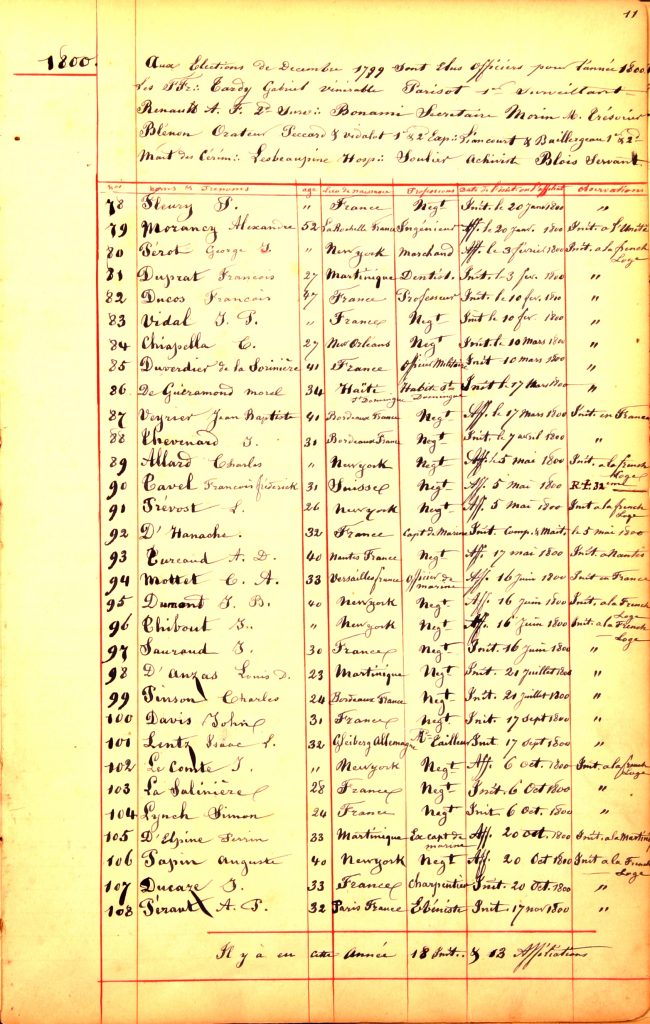 11
1800.
Aux Elections de Decembre 1799 Sont Elus Officiers pour l'année 1800.
Les FF∴ Tardy Gabriel Vénérable Parisot 1er Surveillant
Renault A. F. 2d Surv∴ Bonami Secretaire Morin M. Trésorier
Blénon Orateur Peccard & Vidalot 1r & 2 Exp∴ Liancourt & Baillergeau 1r & 2d
Mait des Cérém∴ Lesbeaupine Hosp∴ Soulier Achivist Blois Servant
Nos Noms & Prenoms age Lieu de naissance Professions Date de l'Init ou l'affiliat Observations
78 Fleury F. " France Negt Init. le 20 Janv 1800 "
79 Morancy Alexandre 52 La Rochelle France Ingénieur Aff. le 20 Janv. 1800 Init. a l'Unité
80 Pérot George J. " New york Marchand Aff. le 3 février 1800 Init. a la french Loge
81 Duprat Francois 27 Martinique Dentist. Init. le 3 fev. 1800 "
82 Ducos Francois 47 France Professeur Init. le 10 fev. 1800 "
83 Vidal J. P. " France Negt Init le 10 fev. 1800 "
84 Chiapella C. 27 New Orleans Negt Init. le 10 Mars 1800 "
85 Duverdier de la Sorinière 41 France Officier Militaire Init 10 mars 1800 "
86 De Guéramond morel 34 Haïti St Domingue Habit St Domingue Init le 17 Mars 1800 "
87 Veyrier Jean Baptiste 41 Bordeaux France Negt Aff. le 17 Mars 1800 Init. en France
88 Thevenard J. 31 Bordeaux France Negt Init. le 7 avril 1800 "
89 Allard Charles " New york Negt Aff. le 5 mai 1800 Init. a la french Loge
90 Tavel Francois frederick 31 Suisse Negt Aff. 5 mai 1800 R ± 32eme
91 Prévost L. 26 New york Negt Aff. 5 mai 1800 Init a la french Loge
92 D'Hanache. 32 France Capt de Marine Init. Comp. & Mait. le 5 mai 1800
93 Tureaud A. D. 40 Nantes France Negt Aff. 17 mai 1800 Init. a Nantes
94 Mottet C. A. 33 Versailles france Officier de marine Aff. 16 Juin 1800 Init en France
95 Dumont J. B. 40 New york Negt Aff. 16 Juin 1800 Init. a la French Loge
96 Thibout J. " New york Negt Aff. 16 Juin 1800 Init. a la French Loge
97 Sauraud J. 30 France Negt Init. 16 Juin 1800 "
98 D'Anzas Louis D. 23 Martinique Negt Init. 21 Juillet 1800 "
99 Pinson Charles 24 Bordeaux France Negt Init. 21 Juillet 1800 "
100 Davis John 31 France Negt Init. 17 sept 1800 "
101 Lentz Isaac L. 32 Gleiberg Allemagne Md Tailleur Init 17 sept 1800 "
102 Le Comte J. " New york Negt Aff. 6 oct 1800 Init. a la french Loge
103 La Salinière 28 France Negt Init. 6 Oct 1800 "
104 Lynch Simon 24 France Negt Init 6 Oct. 1800 "
105 D'Elpine Perrin 33 Martinique Ex capt de marine Aff. 20 Oct. 1800 Init. a la Martinique
106 Papin Auguste 40 New york Negt Aff. 20 Oct 1800 Init a la French Loge
107 Ducaze J. 33 France Charpentier Init. 20 Oct. 1800 "
108 Pérault A. P. 32 Paris France Ebéniste Init 17 nov 1800 "
Il y a eu cette Année 18 Init. & 13 Affiliations